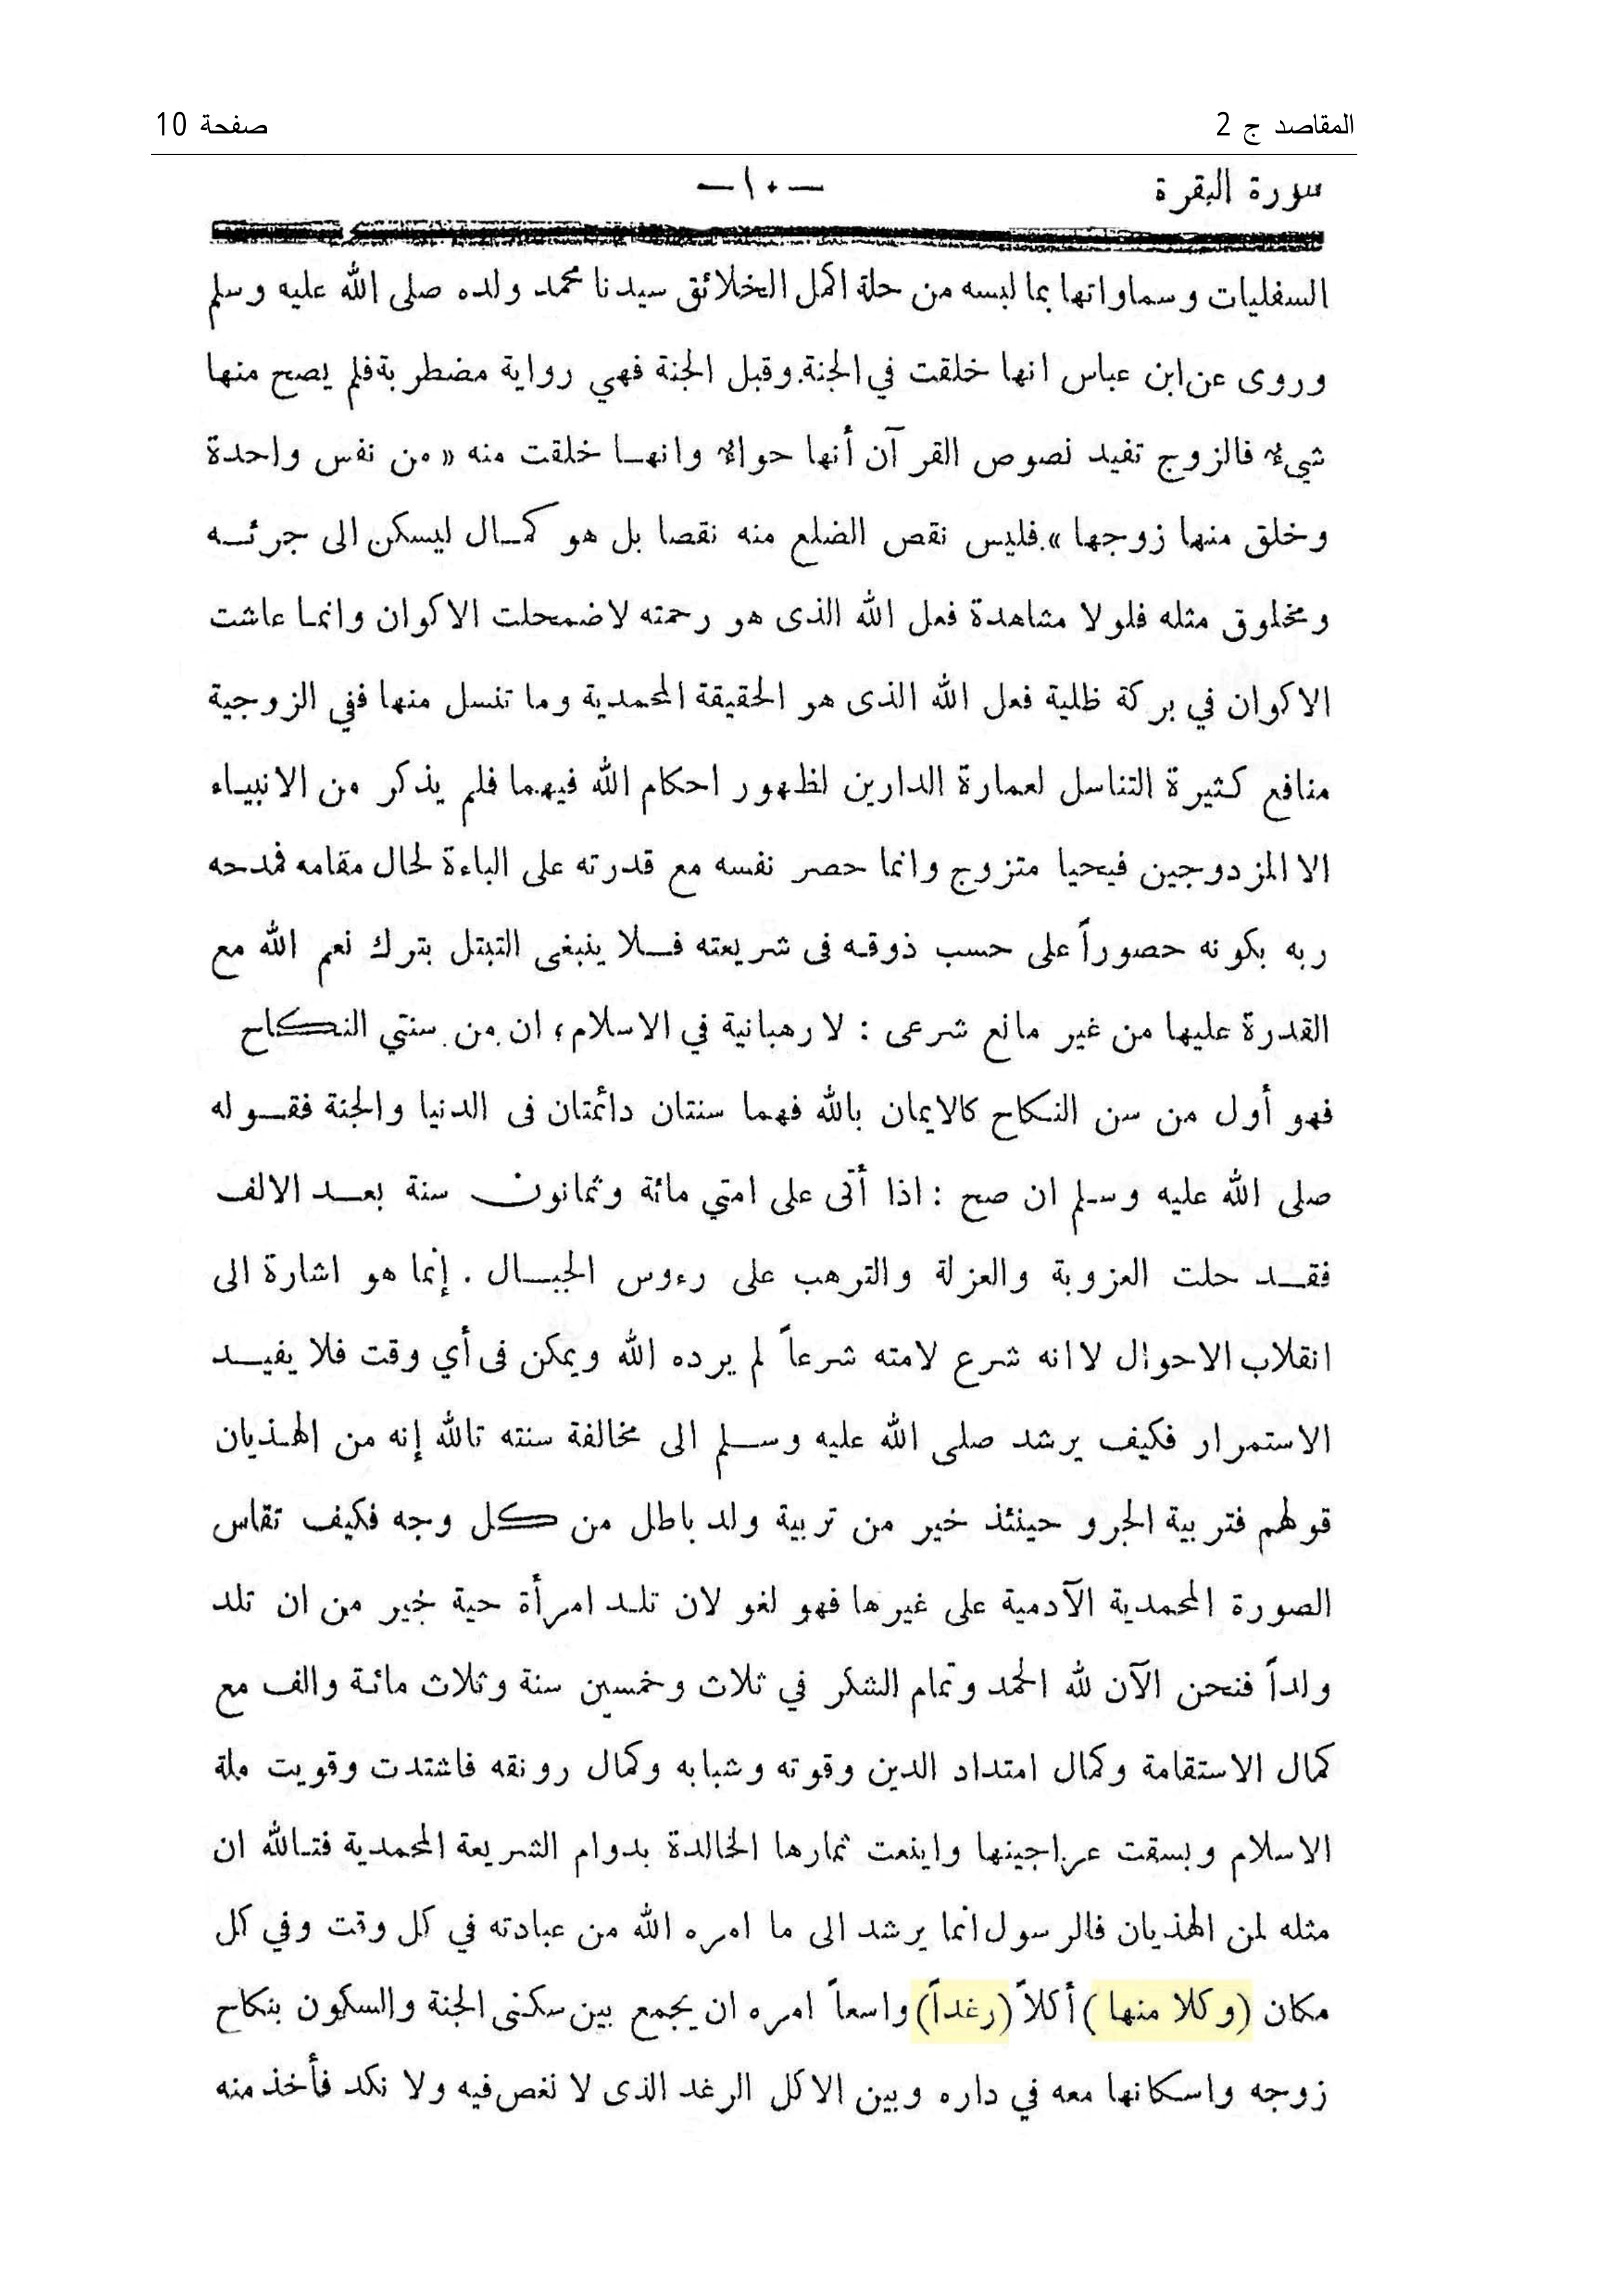 المقاصد ج 2
صفحة 10
سورة البقرة
— ١٠ —
السفليات وسماواتها بما لبسه من حلة اكمل الخلائق سيدنا محمد ولده صلى الله عليه وسلم
وروى عن ابن عباس انها خلقت في الجنة. وقبل الجنة فهي رواية مضطربة فلم يصح منها
شيء فالزوج تفيد نصوص القرآن أنها حواء وانها خلقت منه « من نفس واحدة
وخلق منها زوجها ». فليس نقص الضلع منه نقصا بل هو كمال ليسكن الى جزئه
ومخلوق مثله فلولا مشاهدة فعل الله الذى هو رحمته لاضمحلت الاكوان وانما عاشت
الاكوان في بركة ظلية فعل الله الذى هو الحقيقة المحمدية وما تنسل منها ففي الزوجية
منافع كثيرة التناسل لعمارة الدارين لظهور احكام الله فيهما فلم يذكر من الانبياء
الا المزدوجين فيحيا متزوج وانما حصر نفسه مع قدرته على الباءة لحال مقامه فمدحه
ربه بكونه حصوراً على حسب ذوقه فى شريعته فلا ينبغى التبتل بترك نعم الله مع
القدرة عليها من غير مانع شرعى : لا رهبانية في الاسلام، ان من سنتي النكاح
فهو أول من سن النكاح كالايمان بالله فهما سنتان دائمتان فى الدنيا والجنة فقوله
صلى الله عليه وسلم ان صح : اذا أتى على امتي مائة وثمانون سنة بعد الالف
فقد حلت العزوبة والعزلة والترهب على رءوس الجبال . إنما هو اشارة الى
انقلاب الاحوال لا انه شرع لامته شرعاً لم يرده الله ويمكن فى أي وقت فلا يفيد
الاستمرار فكيف يرشد صلى الله عليه وسلم الى مخالفة سنته تالله إنه من الهذيان
قولهم فتربية الجرو حينئذ خير من تربية ولد باطل من كل وجه فكيف تقاس
الصورة المحمدية الآدمية على غيرها فهو لغو لان تلد امرأة حية خير من ان تلد
ولداً فنحن الآن لله الحمد وتمام الشكر في ثلاث وخمسين سنة وثلاث مائة والف مع
كمال الاستقامة وكمال امتداد الدين وقوته وشبابه وكمال رونقه فاشتدت وقويت ملة
الاسلام وبسقت عراجينها واينعت ثمارها الخالدة بدوام الشريعة المحمدية فتالله ان
مثله لمن الهذيان فالرسول انما يرشد الى ما امره الله من عبادته في كل وقت وفي كل
مكان (وكلا منها ) أكلاً (رغداً) واسعاً امره ان يجمع بين سكنى الجنة والسكون بنكاح
زوجه واسكانها معه في داره وبين الاكل الرغد الذى لا نغص فيه ولا نكد فأخذ منه